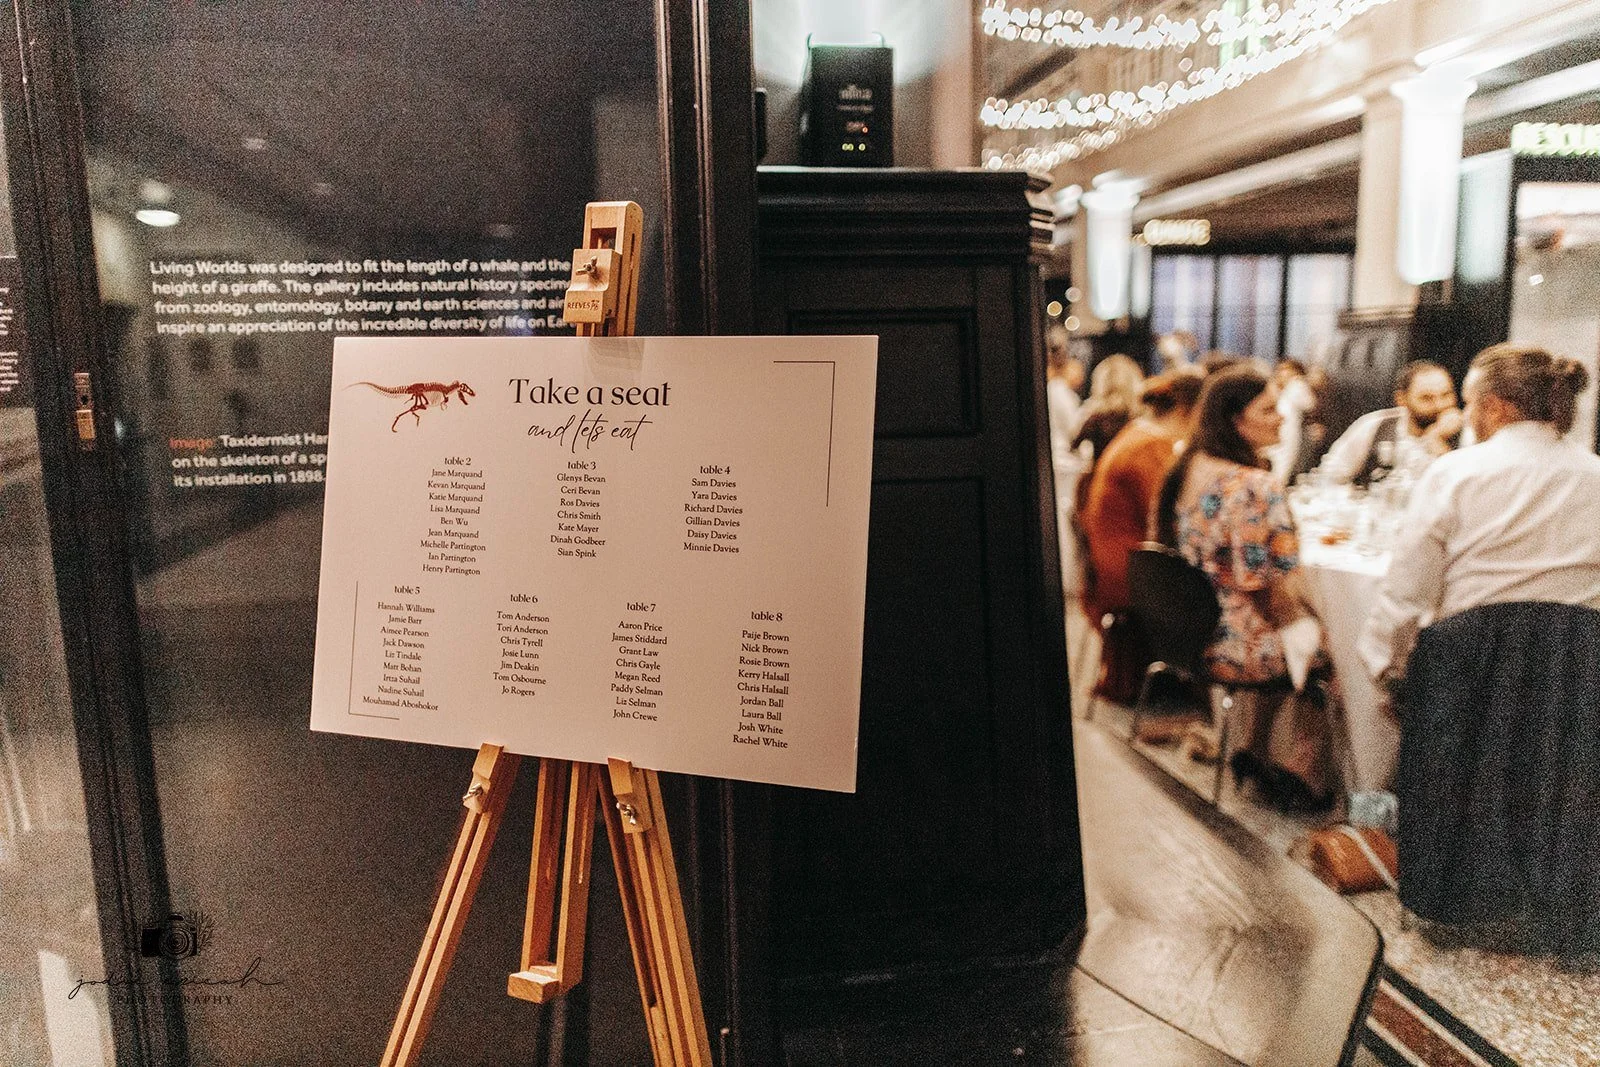 Living Worlds was designed to fit the length of a whale and the
height of a giraffe. The gallery includes natural history specim
from zoology, entomology, botany and earth sciences and aim
inspire an appreciation of the incredible diversity of life on Ear
Image: Taxidermist Har
on the skeleton of a sp
its installation in 1898.
REEVES
Take a seat
and lets eat
table 2
Jane Marquand
Kevan Marquand
Katie Marquand
Lisa Marquand
Ben Wu
Jean Marquand
Michelle Partington
Ian Partington
Henry Partington
table 3
Glenys Bevan
Ceri Bevan
Ros Davies
Chris Smith
Kate Mayer
Dinah Godbeer
Sian Spink
table 4
Sam Davies
Yara Davies
Richard Davies
Gillian Davies
Daisy Davies
Minnie Davies
table 5
Hannah Williams
Jamie Barr
Aimee Pearson
Jack Dawson
Liz Tindale
Matt Bohan
Irtza Suhail
Nadine Suhail
Mouhamad Aboshokor
table 6
Tom Anderson
Tori Anderson
Chris Tyrell
Josie Lunn
Jim Deakin
Tom Osbourne
Jo Rogers
table 7
Aaron Price
James Stiddard
Grant Law
Chris Gayle
Megan Reed
Paddy Selman
Liz Selman
John Crewe
table 8
Paije Brown
Nick Brown
Rosie Brown
Kerry Halsall
Chris Halsall
Jordan Ball
Laura Ball
Josh White
Rachel White
CLIMATE
RESOU
PHOTOGRAPHY